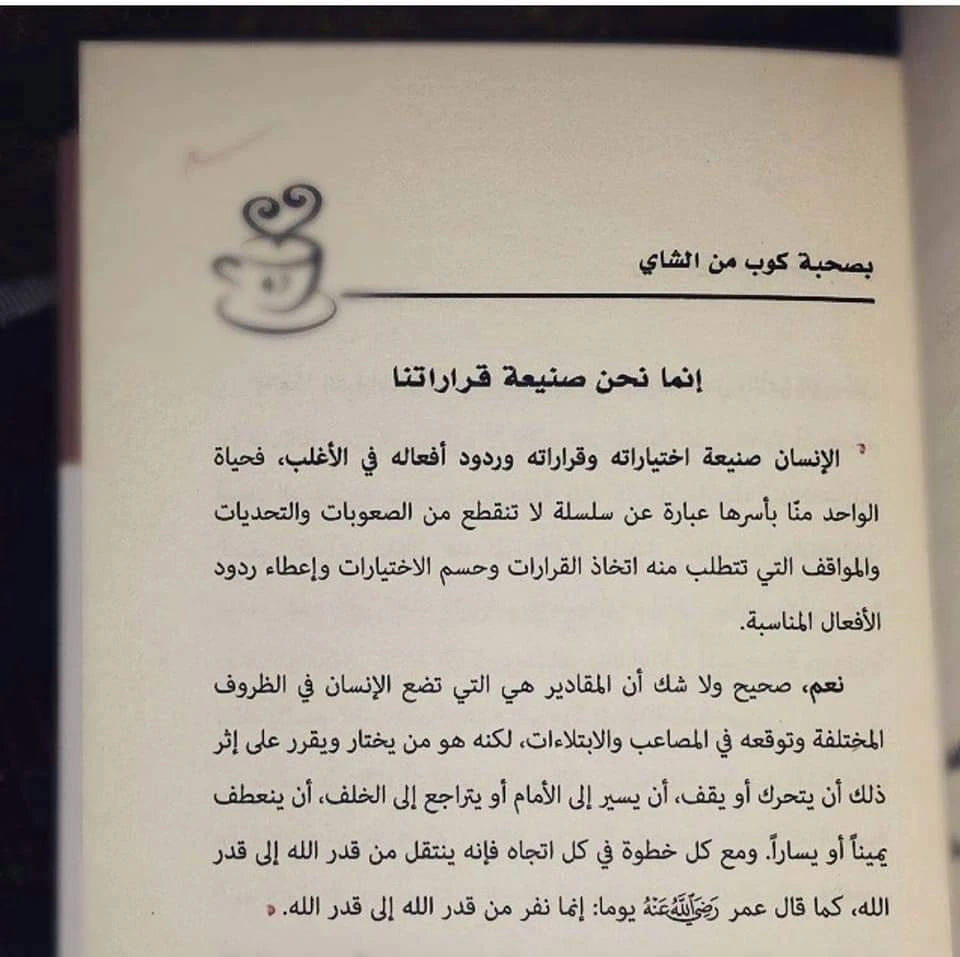 بصحبة كوب من الشاي
إنما نحن صنيعة قراراتنا
الإنسان صنيعة اختياراته وقراراته وردود أفعاله في الأغلب، فحياة
الواحد منّا بأسرها عبارة عن سلسلة لا تنقطع من الصعوبات والتحديات
والمواقف التي تتطلب منه اتخاذ القرارات وحسم الاختيارات وإعطاء ردود
الأفعال المناسبة.
نعم، صحيح ولا شك أن المقادير هي التي تضع الإنسان في الظروف
المختلفة وتوقعه في المصاعب والابتلاءات، لكنه هو من يختار ويقرر على إثر
ذلك أن يتحرك أو يقف، أن يسير إلى الأمام أو يتراجع إلى الخلف، أن ينعطف
يميناً أو يساراً. ومع كل خطوة في كل اتجاه فإنه ينتقل من قدر الله إلى قدر
الله، كما قال عمر رَضِيَ اللَّهُ عَنْهُ يوما: إنما نفر من قدر الله إلى قدر الله.